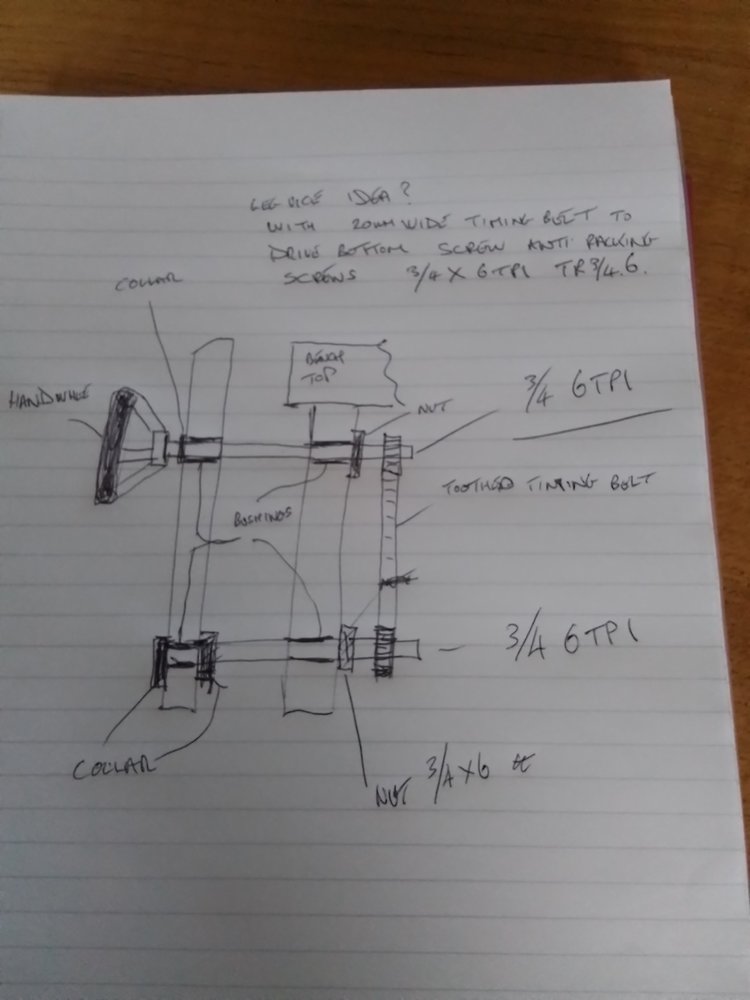 LEG VICE IDEA?
WITH 20MM WIDE TIMING BELT TO
DRIVE BOTTOM SCREW ANTI RACKING
SCREWS 3/4 X 6TPI TR 3/4.6.
COLLAR
BENCH
TOP
HANDWHEE
NUT
3/4 6TPI
TOOTHED TIMING BELT
BUSHINGS
3/4 6TPI
COLLAR
NUT 3/4 X 6